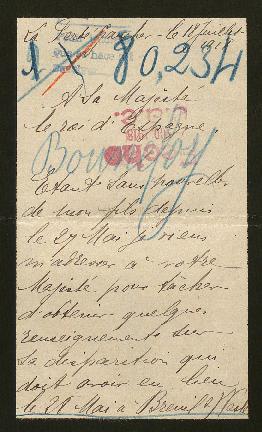 La Ferté Gaucher - le 18 Juillet
1918
80,234
A Sa Majesté
le roi d'Espagne
Etant sans nouvelles
de mon fils depuis
le 27 Mai je viens
m'adresser à votre
Majesté pour tâcher
d'obtenir quelques
renseignements sur
sa disparition qui
doit avoir eu lieu
le 29 Mai à Breuil s/ Vesle